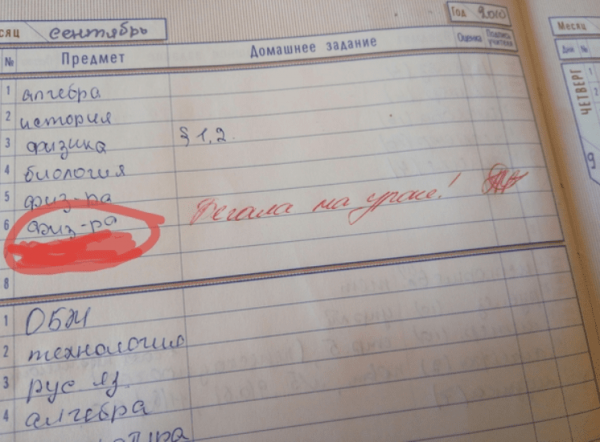 сяц сентябрь
Год 2010
№ Предмет Домашнее задание Оценка Подпись учителя
1 алгебра
2 история
3 физика § 1,2.
4 биология
5 физ-ра
6 физ-ра Бегала на уроке!
8
1 ОБЖ
2 технология
3 рус яз.
4 алгебра
Месяц
№
ЧЕТВЕРГ
1
2
9